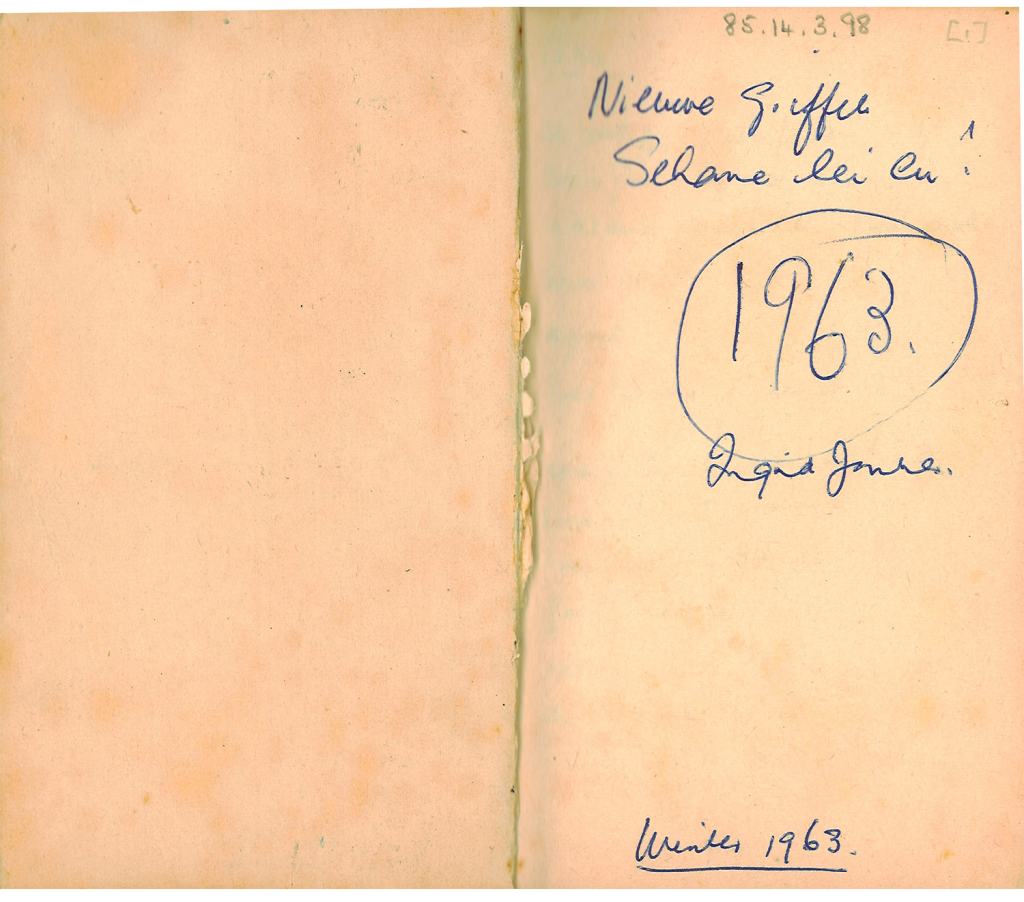 85.14.3.98 [1]
Nieuwe Griffels
Schone leien!
1963.
Ingrid Jonker.
Winter 1963.